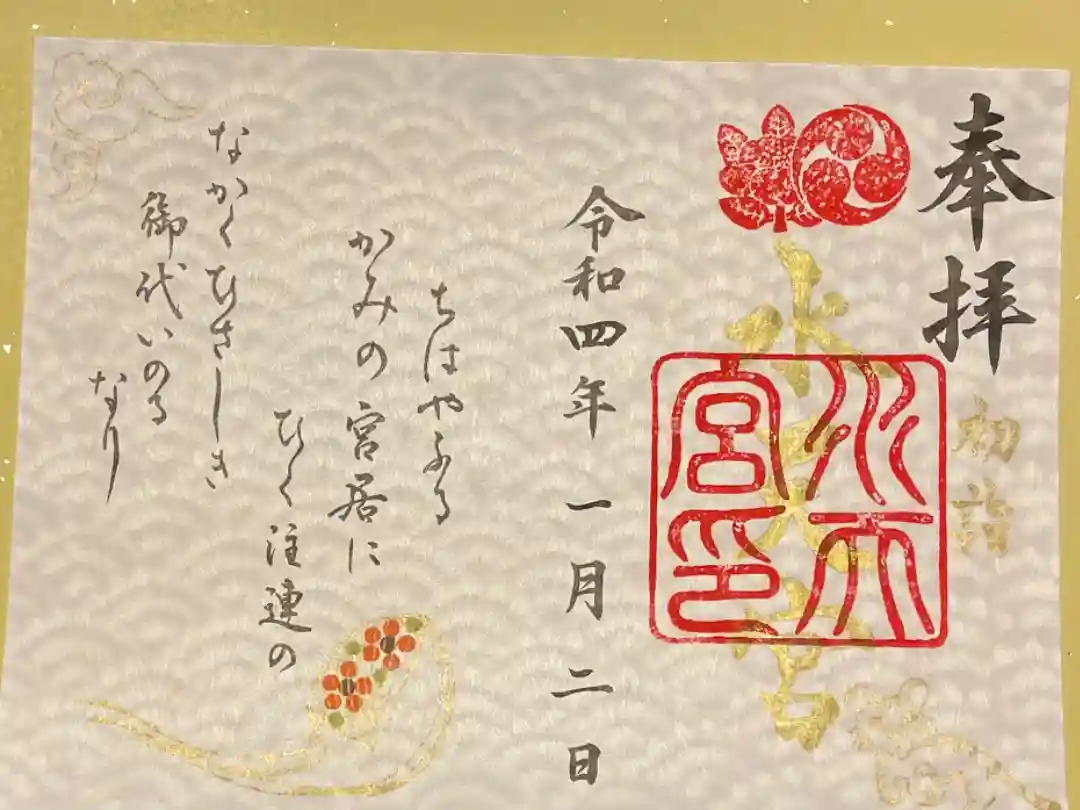 奉拝
初詣
水天宮
水天
宮印
令和四年一月二日
ちはやふる
かみの宮居に
ひく注連の
なかくひさしき
御代いのる
なり